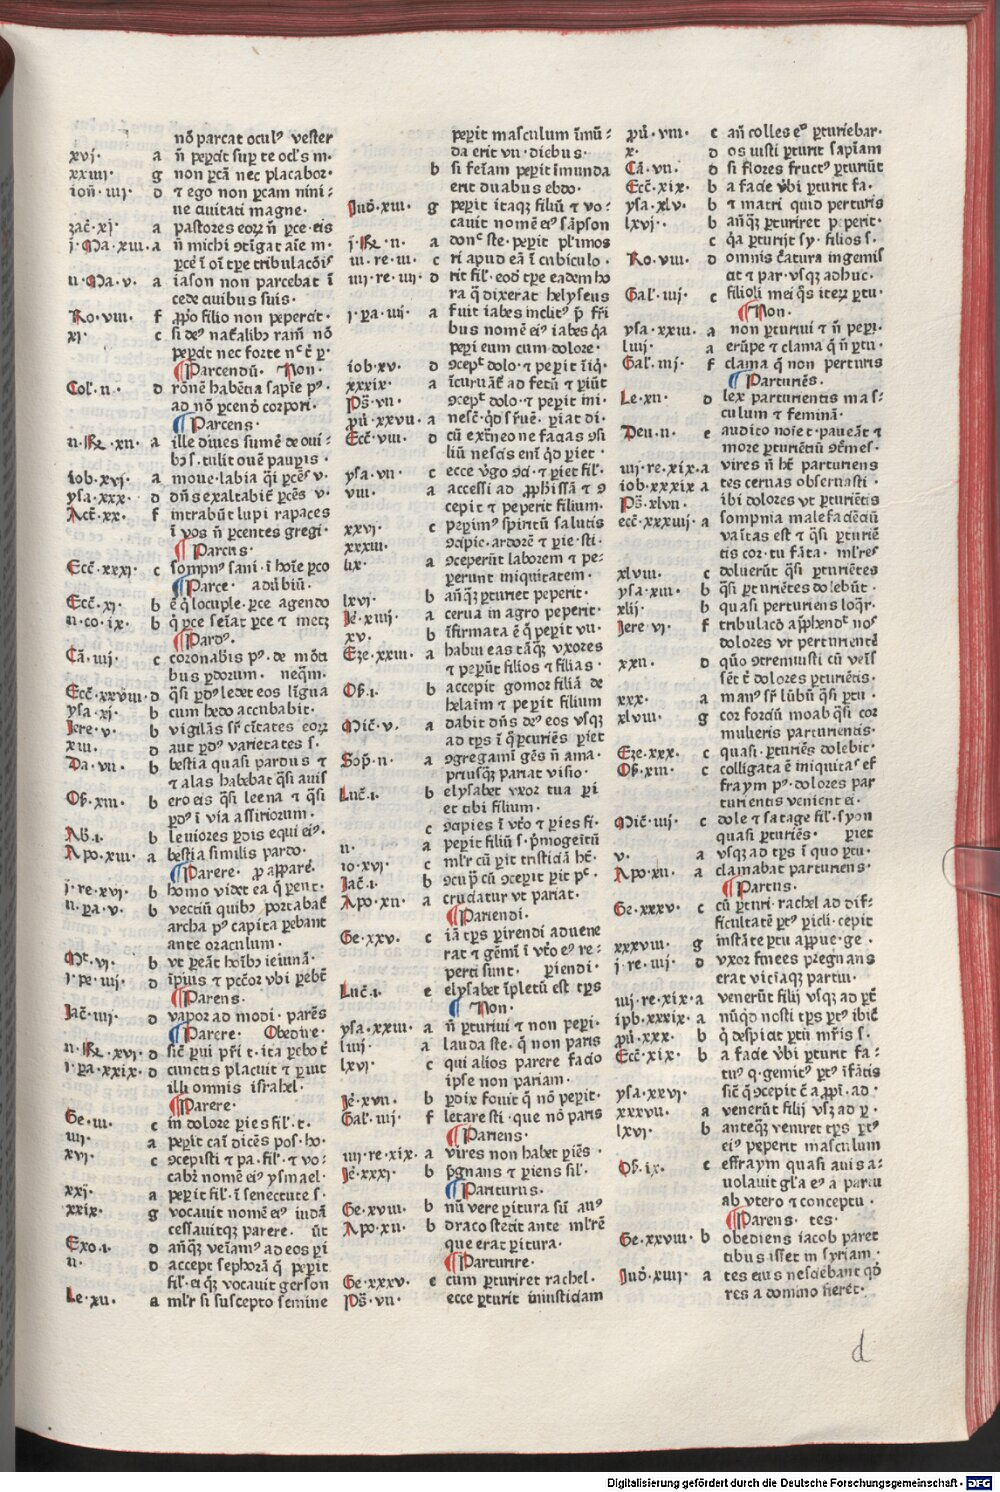 nō parcat ocul⁹ vester
xvj. a n̄ pep̄cit sup te ocl's m.
xxiiii. g non p̱cā nec placabor.
ion̄. iiij. d ⁊ ego non p̱cam nini-
ue ciuitati magne.
zac̄. xj. a pastores eoꝝ n̄ p̱ce. eis
j. Ma. xiii. a n̄ michi
ii. Ma. v. a iason non parcebat ī
cede ciuibus suis.
Ro. viii. f ꝓp̄o filio non pepercit.
xj. c si de⁹ nat̄alibꝫ ram̄ nō
pep̄cit nec forte
¶ Parcendū. Non.
Col'. ii. d rōnē habētia sapīe p⁹.
ad nō p̱cenđ corpori.
¶ Parcens.
ii. Re. xii. a ille diues sumē de oui-
b⁹ s. tulit ouē paup̱is.
iob. xvj. a moue. labia q̄i p̱cēs v.
ysa. xxx. d dn̄s exaltabit̄ p̱cēs v.
Act̄. xx. f intrabūt lupi rapaces
ī vos n̄ p̱centes gregi.
¶ Parcus.
Ecc̄. xxxj. c sompn⁹ sani. ī hoīe p̱co
¶ Parce. aduḃiū.
Ecc̄. xj. b ē q̇ locuple. p̱ce agendo
ii. co. ix. b q̇ p̱ce sēiat p̱ce ⁊ metꝫ
¶ Pard⁹.
Cā. iiij. c coronab̄is p⁹. de mōti
bus p̱dorum. neq̄m.
Ecc̄. xxviii. d q̄si p̱d⁹ ledet eos līgua
ysa. xj. b cum hedo accubabit.
Jere. v. b vigilās sr̄ ciu̅tates eoꝝ
xiii. d aut p̱d⁹ varietates s.
Da. vii. b bestia quasi pardus ⁊
⁊ alas habebat q̄si auis
Oſ. xiii. b ero eis q̄si leena ⁊ q̄si
p̱d⁹ ī via assiriorum.
Ab. i. b leuiores p̱dis equi ei⁹.
Apo. xiii. a bestia similis pardo.
¶ Parere. ꝓ appare.
j. re. xvj. b homo videt ea q̄ p̱ent.
ii. pa. v. b vectiū quibꝫ portabat̄
archa p⁹ capita p̱ebant
ante oraculum.
Mt. vj. b vt p̱eāt hoībꝫ ieiunā.
j. pe. iiij. d īpius ⁊ pc̄cor vbi p̱ebt̄
¶ Parens.
Jac̄. iiij. d vapor ad modi. parēs
¶ Parere. Obedire.
ii. Re. xvj. d sic̄ p̱ui pr̄i t. ita p̱ebo t̄
i. pa. xxix. d cunctis placuit ⁊ p̱uit
illi omnis israhel.
¶ Parere.
Ge. iii. c in dolore p̱ies fil'. t.
iiij. a pep̱it caī dicēs pos. ho.
xvj. c ꝯcepisti ⁊ pa. fil'. ⁊ vo-
cab̄ nomē ei⁹ ysmael.
xxj. a pep̱it fil'. ī senectute s.
xxix. g vocauit nomē ei⁹ iudā
cessauitqꝫ parere. ūt
Exo. i. d an̄qꝫ veīam⁹ ad eos p̱i
ii. d accept sephorā q̄ pep̱it
fil'. ei qꝫ vocauit gerson
Le. xii. a ml'r si suscepto semine
pep̱it masculum īmū-
da erit vii. diebus.
b si fēiam pep̱it īmunda
erit duabus ebdo.
Juđ. xiii. g pep̱it itaqꝫ filiū ⁊ vo-
cauit nomē ei⁹ sāpson
j. Re. ii. a donc̄ ste. pep̱it pl'imos
iii. re. iii. c ri apud eā ī cubiculo.
iiij. re. iiij. d rit fil'. eođ tp̱e eadem ho
ra q̄ dixerat helyseus
j. pa. iiij. a fuit iabes inclit⁹ p̄ fr̄i
bus nomē ei⁹ iabes q̇a
pep̱i eum cum dolore.
iob. xv. d ꝯcep̄t dolo. ⁊ pep̱it īiq̄.
xxxix. a īcuruāt̄ ad fetū ⁊ p̱iūt
Ps̄. vii. ꝯcep̄t dolo. ⁊ pep̱it ini.
p̱u̇. xxvii. a nesc̄. q̇d sr̄uē. p̱iat di.
Ecc̄. viii. d cū ext̄neo ne facias ꝯsi
liū nescis eni q̇d p̱iet.
ysa. vii. c ecce v̇go ꝯci. ⁊ p̱iet fil'.
viii. a accessi ad ꝓphissā ⁊ ꝯ
cepit ⁊ peperit filium.
xxvj. c pep̱im⁹ spiritū salutis
xxxiii. ꝯcipie. ardorē ⁊ p̱ie. sti.
lix. a ꝯceperūt laborem ⁊ pe-
perunt iniquitatem.
lxvj. b an̄qꝫ p̱turiet peperit.
Jē. xiiij. a cerua in agro peperit.
xv. b īfirmata ē q̄ pep̱it vii.
Eze. xxiii. a habui eas tāqꝫ vxores
⁊ pep̱ūt filios ⁊ filias.
Oſ. i. b accepit gomor filiā de
belaim ⁊ pep̱it filium
Mic̄. v. a dabit dn̄s đ⁹ eos vsqꝫ
ad tp̱s ī q̄ p̱turiēs p̱iet
Sop̄. ii. a ꝯgregamī gēs n̄ ama.
priusqꝫ pariat visio.
Luc̄. i. b elysabet vxor tua p̱i
et tibi filium.
c ꝯcipies ī vt̄o ⁊ p̱ies fi.
ii. a pep̱it filiū s. p̄mogeitū
io. xvj. c ml'r cū p̱it tristiciā hē.
Jac̄. i. b ꝯcup̄ cū ꝯcep̱it p̱it pc̄.
Apo. xii. a cruciatur vt pariat.
¶ Pariendi.
Ge. xxv. c iā tp̱s p̱irendi aduene
rat ⁊ gēmī ī vt̄o ei⁹ re-
perti sunt. p̱iendi.
Luc̄. i. e elysabet īpletū est tp̱s
¶ Non.
ysa. xxiii. a n̄ p̱turiui ⁊ non pep̱i.
liiij. a lauda ste. q̄ non paris
lxvj. c qui alios parere facio
ipse non pariam.
Jē. xvii. b p̱dix fouit q̄ nō pep̱it.
Gal'. iiij. f letare sti. que nō paris
¶ Pariens.
iiij. re. xix. a vires non habet p̱iēs.
Jē. xxxj. b p̄gnans ⁊ p̱iens sil'.
¶ Pariturus.
Ge. xviii. b nū vere p̱itura sū an⁹
Apo. xii. b draco stetit ante ml'rē
que erat p̱itura.
¶ Parturire.
Ge. xxxv. e cum p̱turiret rachel.
Ps̄. vii. ecce p̱turit iniusticiam
p̱u̇. viii. c an̄ colles e⁰ p̱turiebar.
x. d os iusti p̱turit sapīam
Cā. vii. d si flores fruct⁹ p̱turiūt
Ecc̄. xix. b a facie v̇bi p̱turit fa.
ysa. xlv. b ⁊ matri quid perturis
lxvj. b an̄qꝫ p̱turiret p. peperit.
c q̇a p̱turijt sy. filios s.
Ro. viii. d omnis c̄atura ingemis
cit ⁊ par. vsqꝫ adhuc.
Gal'. iiij. c filioli mei q̄s iteꝝ p̱tu.
¶ Non.
ysa. xxiii. a non p̱turiui ⁊ n̄ pep̱i.
liiij. a erūpe ⁊ clama q̄ n̄ p̱tu.
Gal'. iiij. f clama q̄ non perturis
¶ Parturiēs.
Le. xii. d lex parturientis mas-
culum ⁊ feminā.
Deu. ii. e audito noīe t. paueāt ⁊
more p̱turiētiū
iiij. re. xix. a vires n̄ hēt parturiens
iob. xxxix a tes ceruas obseruasti.
Ps̄. xlvii. ibi dolores vt p̱turiētis
ecc̄. xxxiiij. a sompnia malefaciētiū
vaītas est ⁊ q̄si p̱turiē
tis cor. tu fāta. ml'res
xlviii. c doluerūt q̄si p̱turiētes
ysa. xiii. b q̄si p̱turiētes dolebūt.
xlij. b quasi perturiens loq̄r.
Jere vj. f tribulacō ap̄hend̄t nos
dolores vt perturientē
xxii. d q̄uo ꝯgremuisti cū veīs
sēt t̄ dolores p̱turiētis.
xxx. a man⁹ sr̄ lūbū q̄si p̱tu.
xlviii. g cor forciū moab q̄si cor
mulieris parturientis.
Eze. xxx. c quasi. p̱turiēs dolebit.
Oſ. xiii. c colligata ē iniquitas ef
fraym p⁹. dolores par
turientis venient ei.
Mic̄. iiij. c dole ⁊ satage fil'. syon
quasi p̱turiēs. p̱iet
v. a vsqꝫ ad tp̱s ī quo p̱tu.
Apo. xii. a clamabat parturiens.
¶ Partus.
Ge. xxxv. c cū p̱turi. rachel ad dif-
ficultatē p̱t⁹ p̱icli. cepit
xxxviii. g instāte p̱tu apparue. ge.
j. re. iiij. d vxor finees pregnans
erat viciāqꝫ partui.
iiij. re. xix. a venerūt filij vsqꝫ ad p̱t̄
ipb. xxxix. a nūq̇d nosti tp̱s p̱t⁹ ibic̄
p̱u̇. xxx. b q̇ despicit p̱tū mr̄is s.
Ecc̄. xix. b a facie v̇bi p̱turit fa-
tu⁹ q. gemit⁹ p̱t⁹ īfātis
ysa. xxvj. sic̄ q̄ ꝯcepit c̄ a ꝓpī. ad.
xxxvii. a venerūt filij vsqꝫ ad p̱.
lxvj. b anteqꝫ veniret tp̱s p̱t⁹
ei⁹ peperit masculum
Oſ. ix. c effraym quasi auis a-
uolauit gl'a e⁹ a partu
ab vtero ⁊ conceptu.
¶ Parens. tes.
Ge. xxviii. b obediens iacob paren
tibus isset in syriam.
Juđ. xiiij. a tes eius nesciebant q̇đ
res a domino fieret.
d
Digitalisierung gefördert durch die Deutsche Forschungsgemeinschaft - DFG